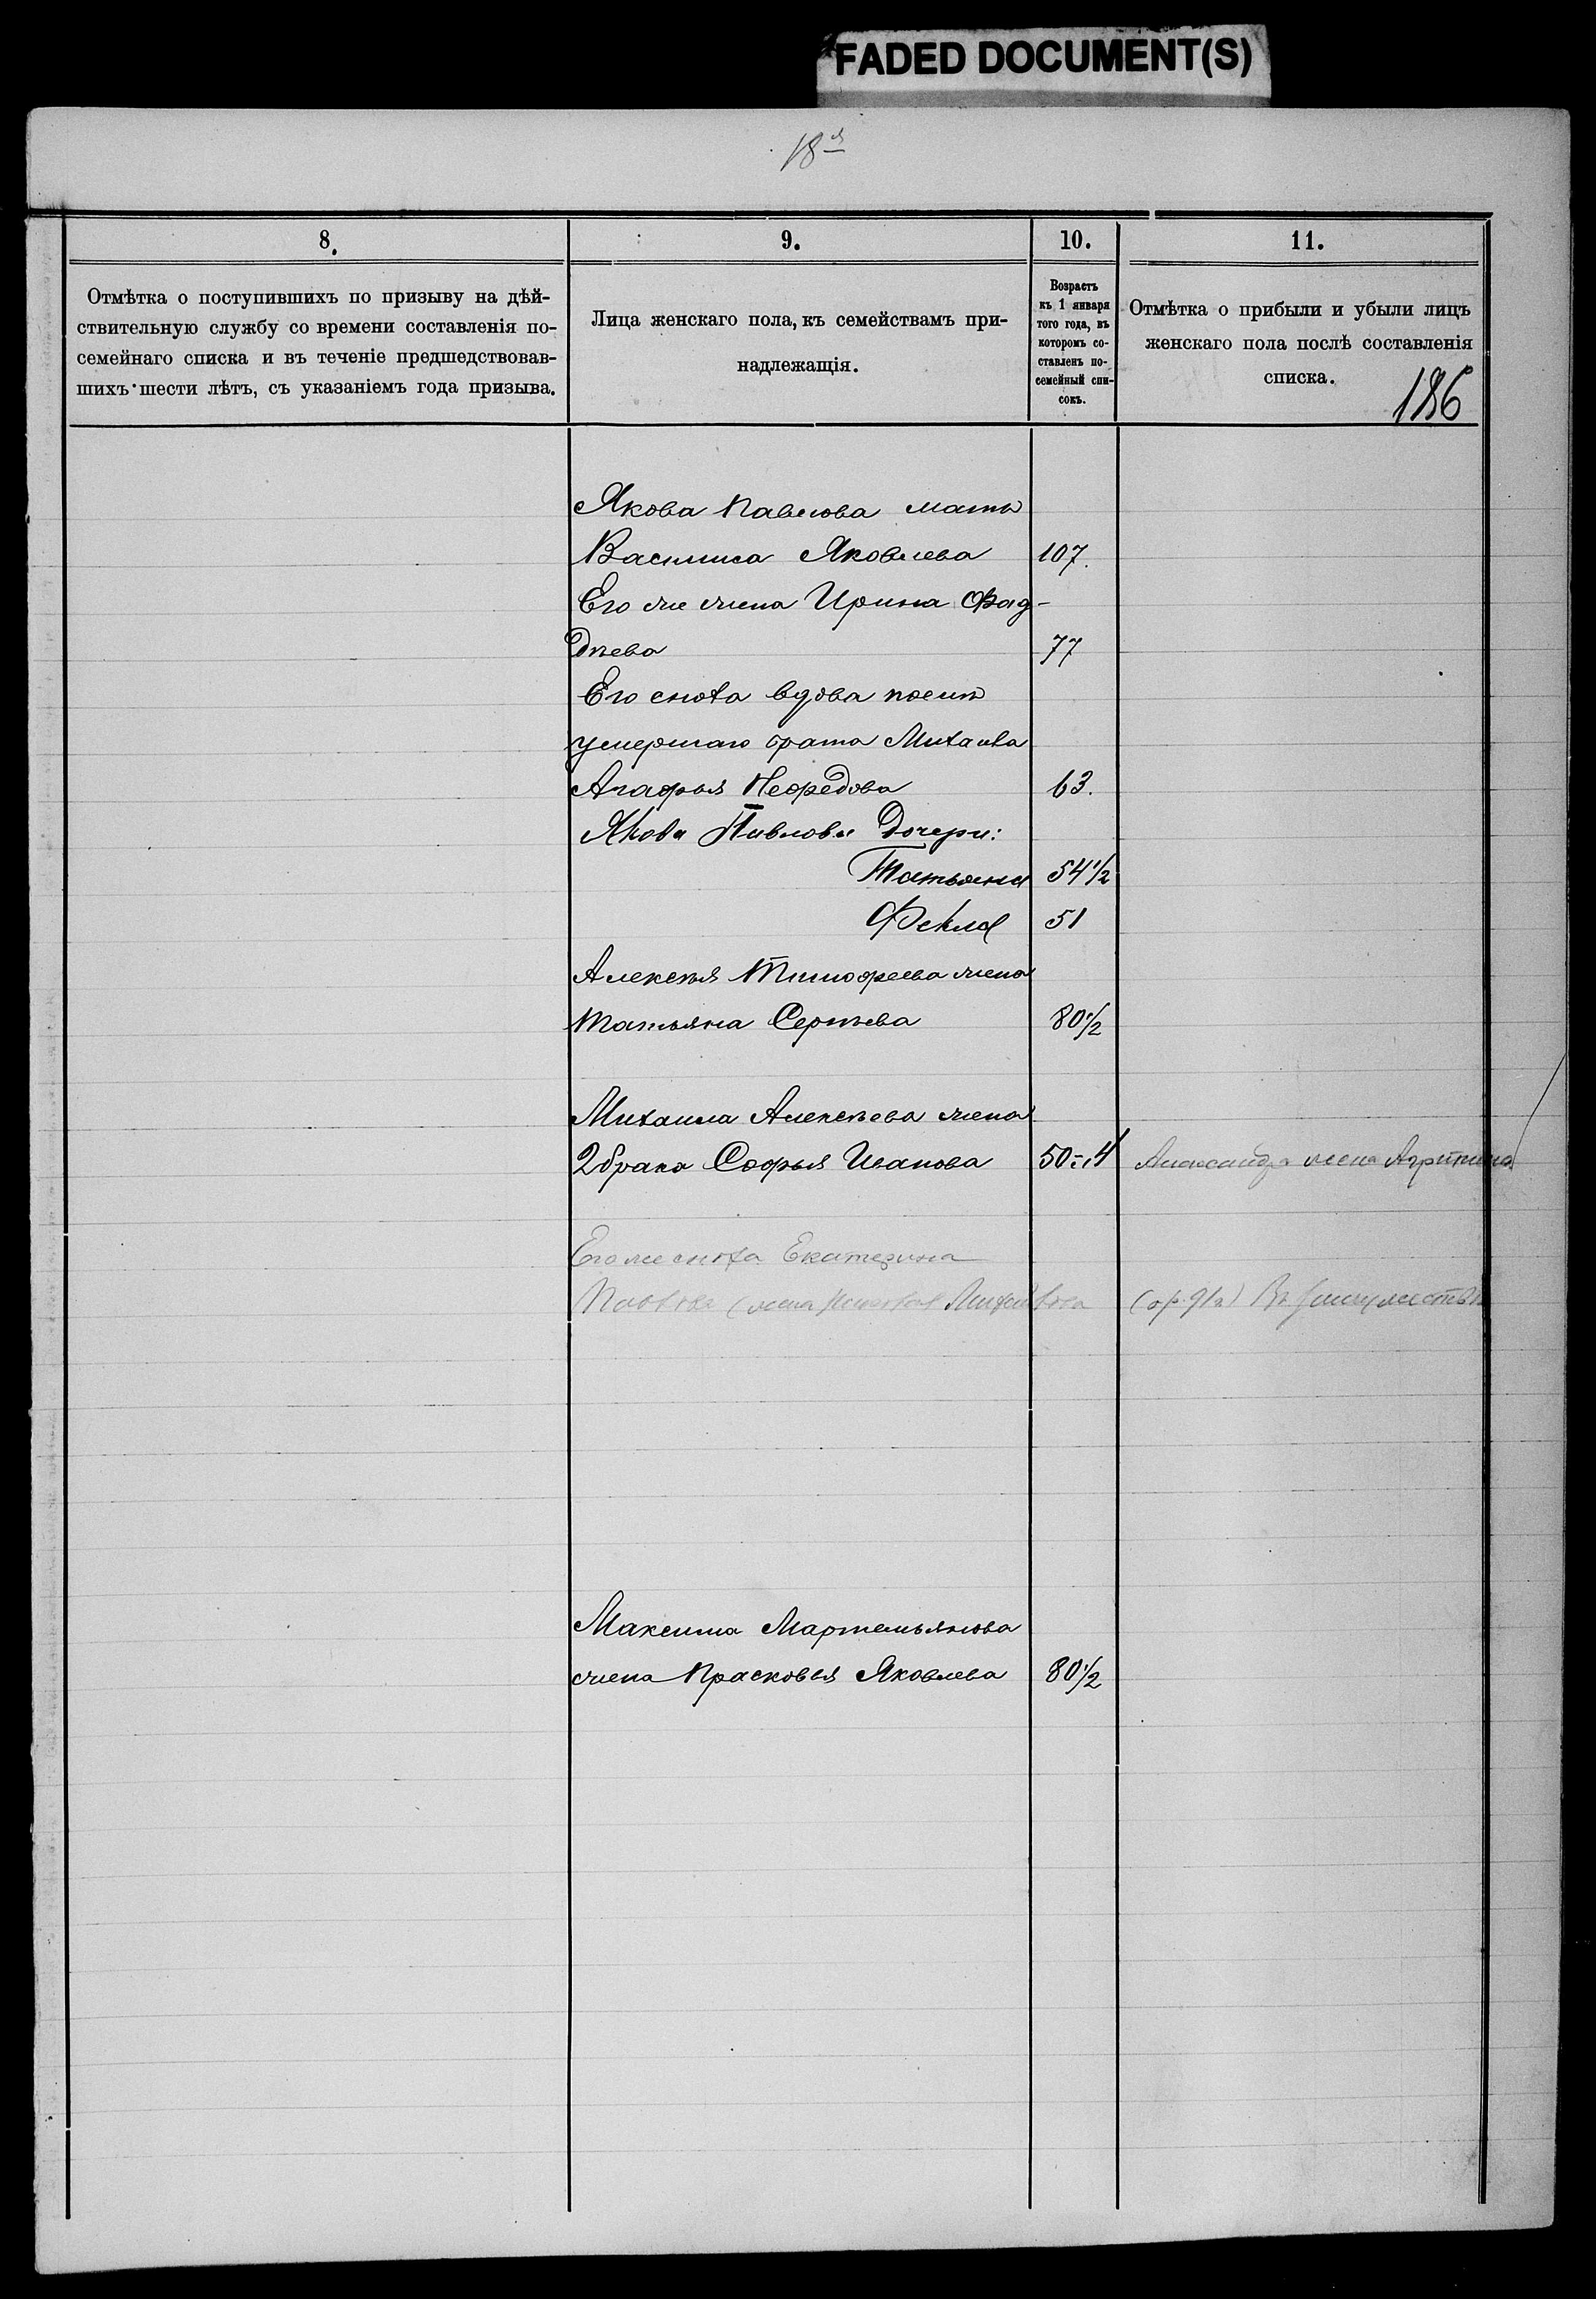 FADED DOCUMENT(S)
18
8.
9.
10.
11.
Отмѣтка о поступившихъ по призыву на дѣй-
ствительную службу со времени составленія по-
семейнаго списка и въ теченіе предшедствовав-
шихъ шести лѣтъ, съ указаніемъ года призыва.
Лица женскаго пола, къ семействамъ при-
надлежащія.
Возрастъ
къ 1 января
того года, въ
которомъ со-
ставленъ по-
семейный спи-
сокъ.
Отмѣтка о прибыли и убыли лицъ
женскаго пола послѣ составленія
списка.
186
Якова Павлова мать
Василиса Яковлева 107.
Его же жена Ирина Фад-
дѣева 77
Его сноха вдова послѣ
умершаго брата Михаила
Агафья Нефедова 63.
Якова Павлова Дочери:
Татьяна 54 1/2
Фекла 51
Алексѣя Тимофеева жена
Татьяна Сергѣева 80 1/2
Михаила Алексѣева жена
2 брака Софья Иванова 50 Александра жена Агрипина
Его же сноха Екатерина
(жена
Максима Мартемьянова
жена Прасковья Яковлева 80 1/2